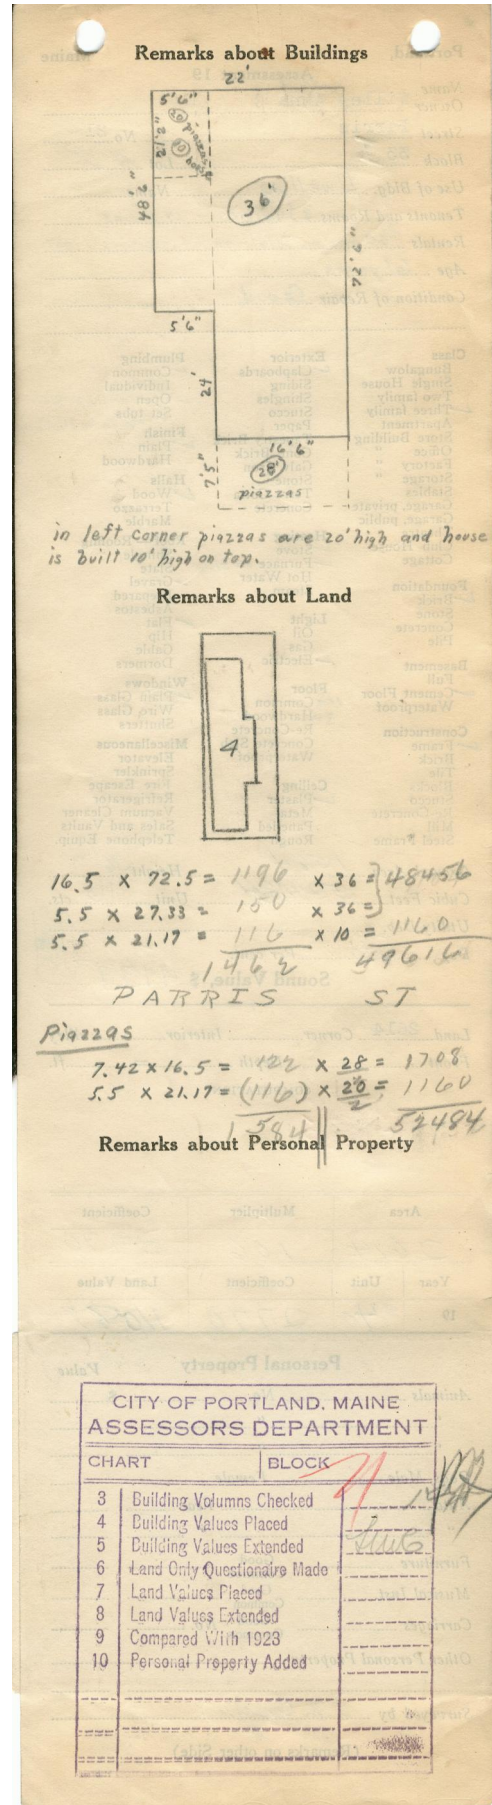 Remarks about Buildings
22'
5'6"
20 piazzas
21'2"
10
48'6"
36'
72'6"
5'6"
24'
16'6"
7'5"
28'
piazzas
in left corner piazzas are 20' high and house
is built 10' high on top.
Remarks about Land
4
16.5 x 72.5 = 1196 x 36 = } 48456
5.5 x 27.33 = 150 x 36 = }
5.5 x 21.17 = 116 x 10 = 1160
1462 49616
PARRIS ST
Piazzas
7.42 x 16.5 = 122 x 28 = 1708
5.5 x 21.17 = (116) x 20/2 = 1160
1584 52484
Remarks about Personal Property
CITY OF PORTLAND, MAINE
ASSESSORS DEPARTMENT
CHART BLOCK
3 Building Volumns Checked
4 Building Values Placed
5 Building Values Extended
6 Land Only Questionaire Made
7 Land Values Placed
8 Land Values Extended
9 Compared With 1923
10 Personal Property Added